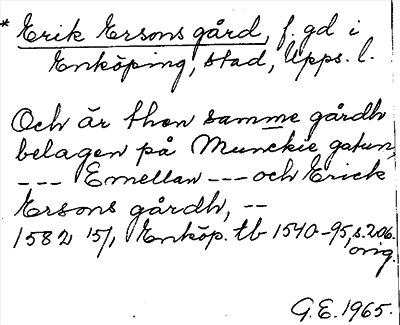 * Erik Ersons gård, f. gd i
Enköping, stad, Upps. l.
Och är then samme gårdh
belagen på Munckie gatun,
--- Emellan --- och Erick
Ersons gårdh, --
1582 15/1, Enköp. tb 1540-95, s. 206.
orig.
G.E. 1965.